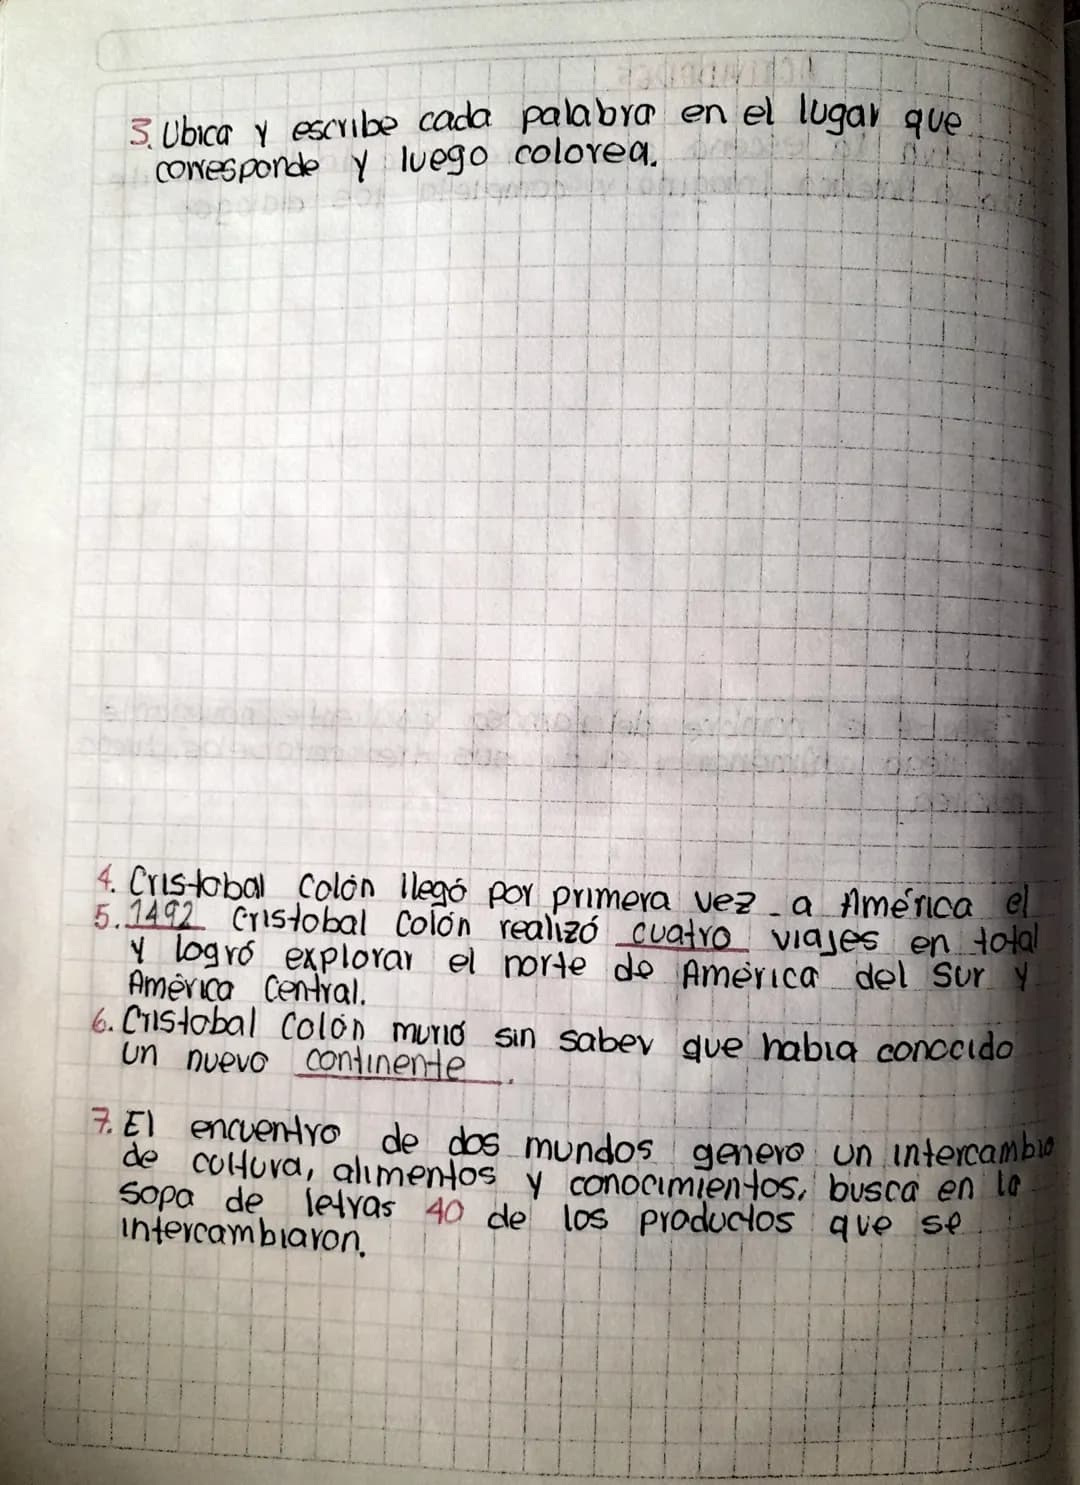 3. Ubica y escribe cada palabra en el lugar que
corresponde y luego colorea.
4. Cristobal Colón llegó por primera vez a América el
5. 1492 Cristobal Colón realizó cuatro viajes en total
y logró explorar el norte de América del Sur y
América Central.
6. Cristobal Colón murió sin saber que habia conocido
un nuevo continente.
7. El encuentro de dos mundos genero un intercambio
de cultura, alimentos y conocimientos, busca en la
sopa de letras 40 de los productos que se
intercambiaron.